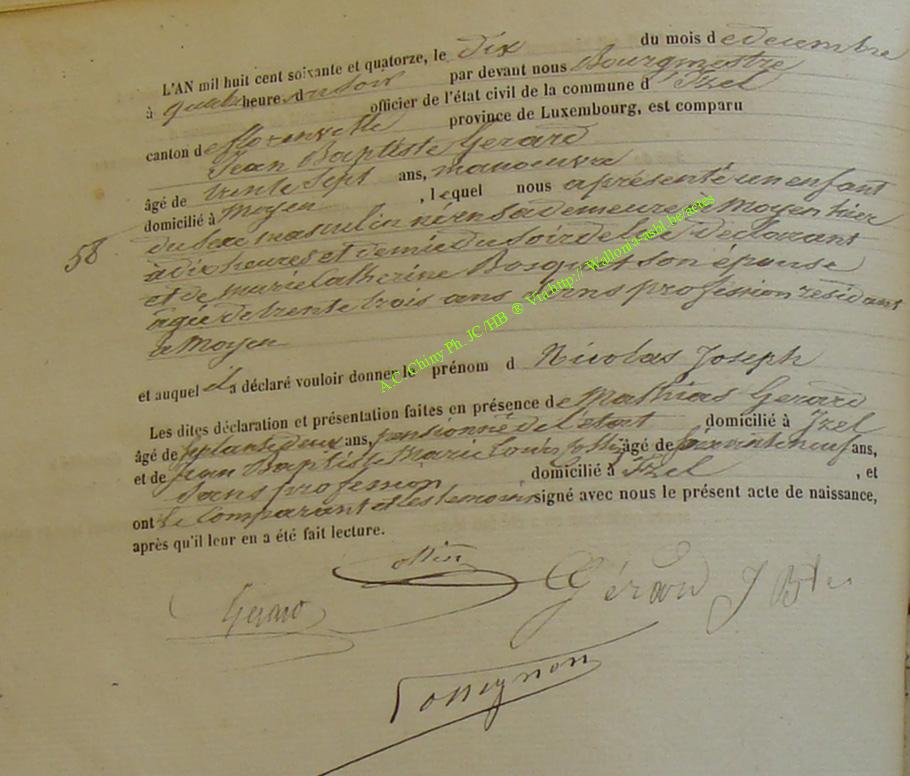 L'AN mil huit cent soixante et quatorze, le dix du mois de decembre
à quatre heure du soir par devant nous Bourgmestre
officier de l'état civil de la commune d'Izel
canton de florenville province de Luxembourg, est comparu
Jean Baptiste Gerard
âgé de trente sept ans, manoeuvre
domicilié à Moyen , lequel nous a présenté un enfant
58
du sexe masculin né en sa demeure à Moyen hier
à dix heures et demie du soir de lui declarant
et de Marie Catherine Bosquet son épouse
agée de trente trois ans sans profession residant
à Moyen
et auquel il a déclaré vouloir donner le prénom d Nicolas Joseph
Les dites déclaration et présentation faites en présence de Mathias Gerard
âgé de ans, pensionné de l'état domicilié à Izel
et de Jean Baptiste Marie Louis âgé de ans,
sans profession domicilié à Izel , et
ont le comparant et les temoins signé avec nous le présent acte de naissance,
après qu'il leur en a été fait lecture.
Gérard J Bte
A.C. Chiny Ph. JC/HB ® Via http://Wallonia-asbl.be/actes